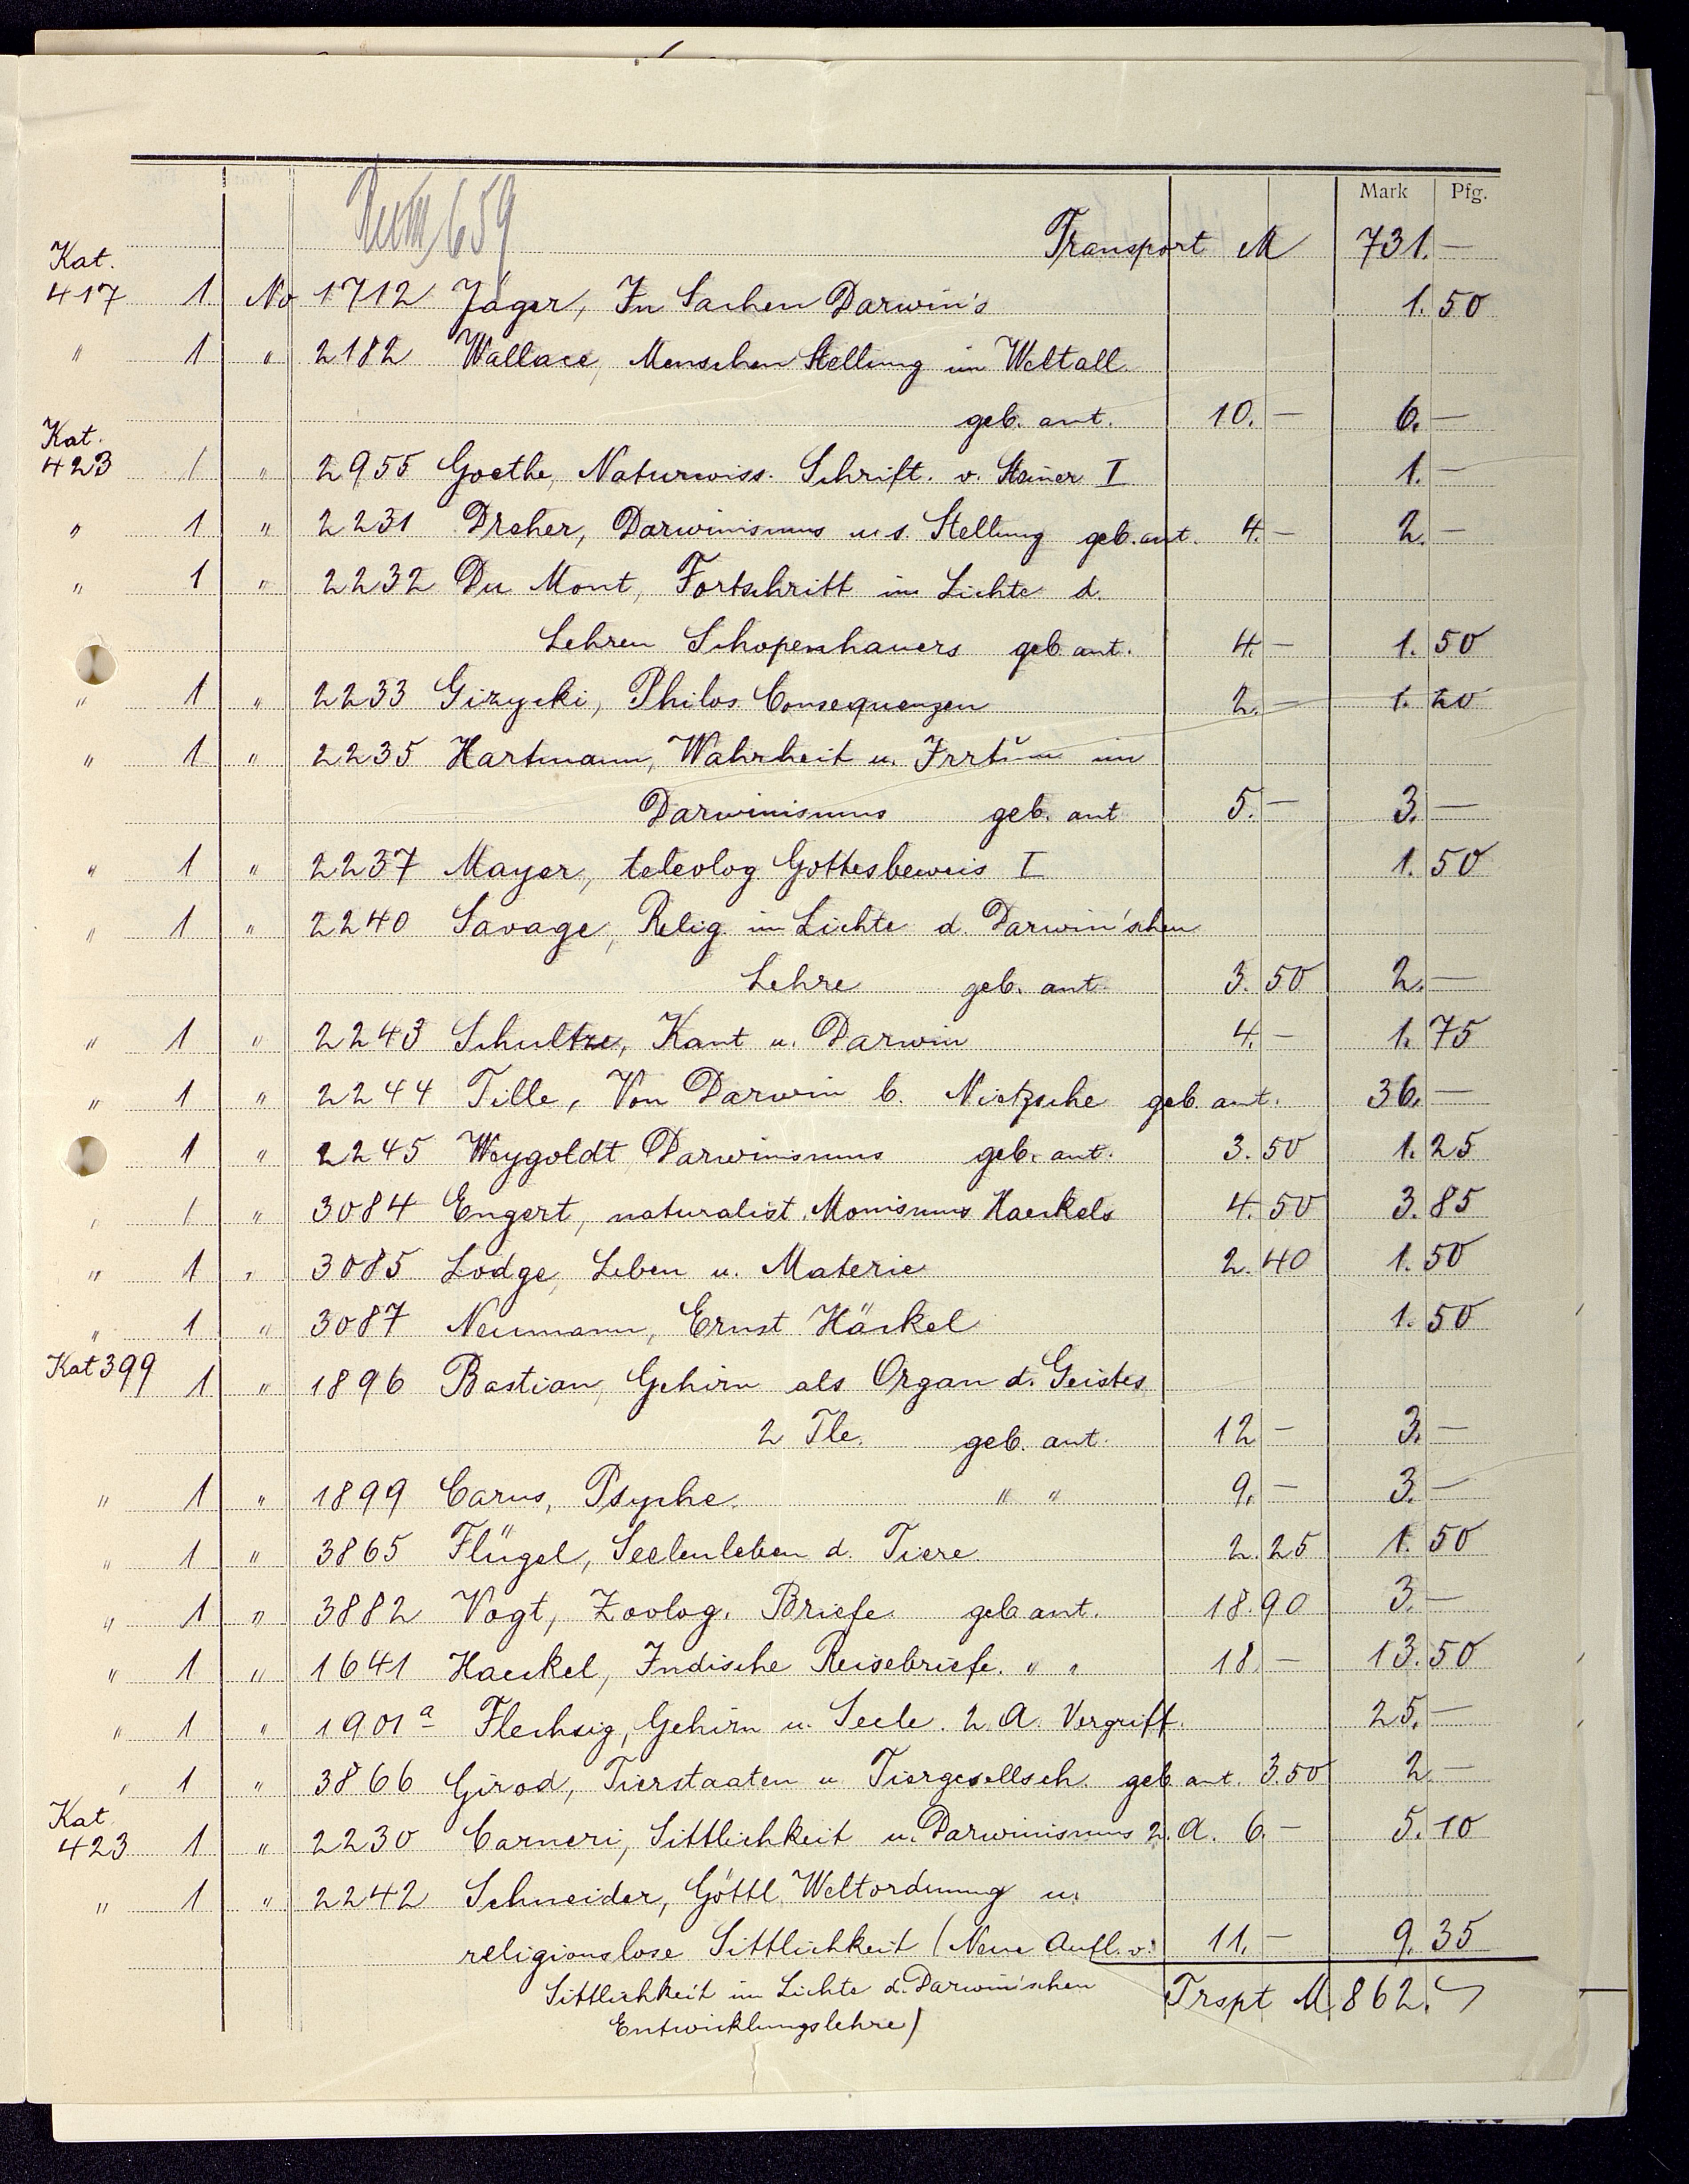 Mark Pfg.
659
Transport M 731. —
Kat.
417 1 No 1712 Jäger, In Sachen Darwin's 1. 50
" 1 " 2182 Wallace, Menschen Stellung im Weltall
geb. ant. 10. — 6. —
Kat.
423 1 " 2955 Goethe, Naturwiss. Schrift. v. Steiner I 1. —
" 1 " 2231 Dreher, Darwinismus u. s. Stellung geb. ant. 4. — 2. —
" 1 " 2232 Du Mont, Fortschritt im Lichte d.
Lehren Schopenhauers geb. ant. 4. — 1. 50
" 1 " 2233 Gizycki, Philos. Consequenzen 2. — 1. 20
" 1 " 2235 Hartmann, Wahrheit u. Irrtum im
Darwinismus geb. ant 5. — 3. —
" 1 " 2237 Mayer, teleolog. Gottesbeweis I 1. 50
" 1 " 2240 Savage, Relig. im Lichte d. Darwin'schen
Lehre geb. ant. 3. 50 2. —
" 1 " 2243 Schultze, Kant u. Darwin 4. — 1. 75
" 1 " 2244 Tille, Von Darwin b. Nietzsche geb. ant. 36. —
1 " 2245 Weygoldt, Darwinismus geb. ant. 3. 50 1. 25
" 1 " 3084 Engert, naturalist. Monismus Haeckels 4. 50 3. 85
" 1 " 3085 Lodge, Leben u. Materie 2. 40 1. 50
" 1 " 3087 Neumann, Ernst Häckel 1. 50
Kat 399 1 " 1896 Bastian, Gehirn als Organ d. Geistes
2 Tle. geb. ant. 12 — 3. —
" 1 " 1899 Carus, Psyche. " " 9. — 3. —
" 1 " 3865 Flügel, Seelenleben d. Tiere 2. 25 1. 50
" 1 " 3882 Vogt, Zoolog. Briefe geb. ant. 18. 90 3. —
" 1 " 1641 Haeckel, Indische Reisebriefe. " " 18. — 13. 50
" 1 " 1901a Flechsig, Gehirn u. Seele. 2. A. Vergriff. 25. —
" 1 " 3866 Girod, Tierstaaten u. Tiergesellsch. geb. ant. 3. 50 2. —
Kat.
423 1 " 2230 Carneri, Sittlichkeit u. Darwinismus 2. A. 6. — 5. 10
" 1 " 2242 Schneider, Göttl. Weltordnung u.
religionslose Sittlichkeit (Neue Aufl. v. 11. — 9. 35
Sittlichkeit im Lichte d. Darwin'schen Trspt M 862. —
Entwicklungslehre)